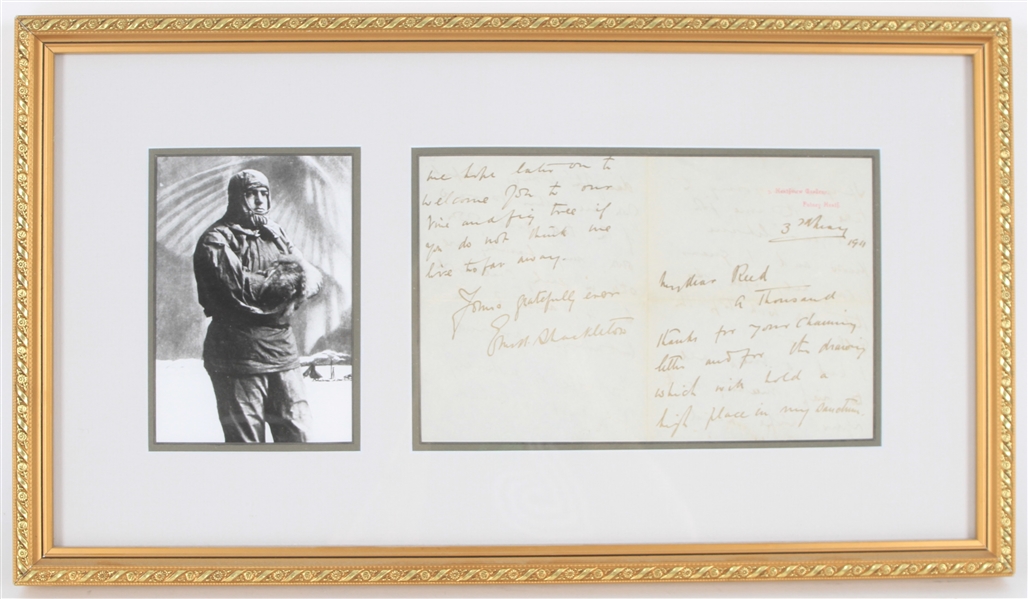 we hope later on to
welcome you to our
Vine and fig tree if
you do not think we
live too far away.
Yours gratefully ever
Ernest Shackleton
3rd May
1911
My dear Reed
A thousand
thanks for your charming
letter and for the drawing
which will hold a
high place in my sanctum